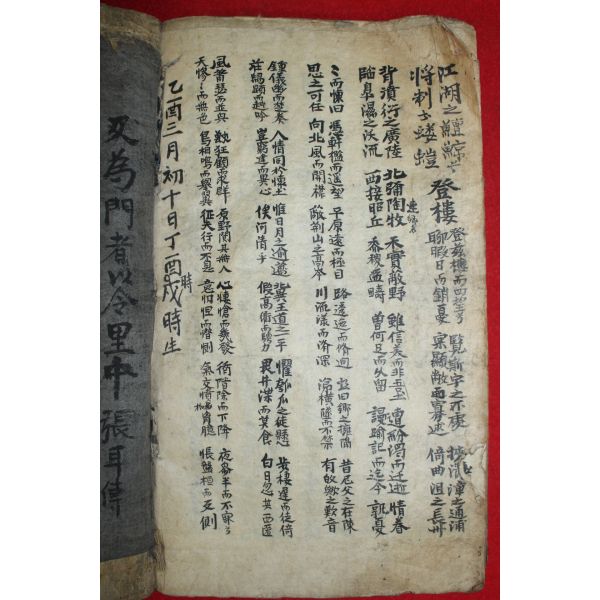 江湖之鱣鯨兮
將制於螻螘
登樓
登茲樓而四望兮 覽斯宇之所處 挾清漳之通浦
聊暇日而銷憂 寔顯敞而寡逑 倚曲沮之長州
背濆衍之廣陸 北彌陶牧 禾實蔽野 雖信美而非吾土 遭紛濁而迁逝 情眷
臨皐濕之沃流 西接昭丘 黍稷盈疇 曾何足而久留 謾踰記而迄今 孰憂
ミ而懷旧 馮軒檻而遙望 平原遠而極目 路逶迤而脩迥 悲旧鄉之壅隔 昔尼父之在陳
思之可任 向北風而開襟 蔽荊山之高岑 川旣漾而濟深 涕橫墜而不禁 有故歟之歎音
鍾儀幽而楚奏 人情同於懷土 惟日月之逾邁 冀王道之一平 懼匏瓜之徒懸 步棲遲而徙倚
莊舃顯而越吟 豈窮達而異心 俟河淸乎 假高衢而騁力 畏井渫而莫食 白日忽其西匿
風蕭瑟而並興 獸狂顧而求群 原野闃其無人 心悽愴而感發 循階除而下降 夜參半而不寐兮
天慘ミ而無色 鳥相鳴而擧翼 征夫行而不息 意忉怛而憯惻 氣交憤於胸臆 悵盤桓而反側
乙酉三月初十日丁酉戌時生
時
又為門者以令里中 張耳傳